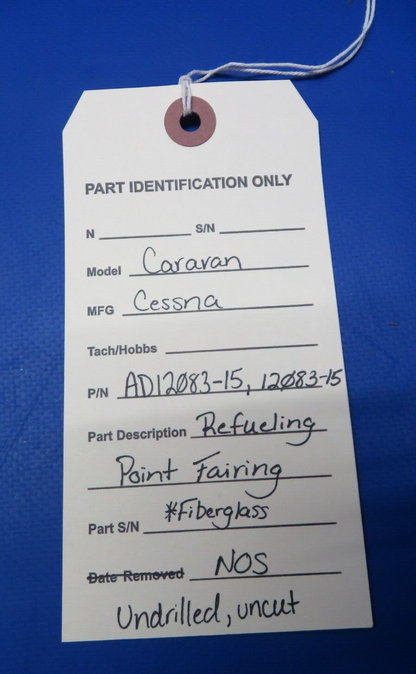 PART IDENTIFICATION ONLY
N S/N
Model Caravan
MFG Cessna
Tach/Hobbs
P/N AD12083-15, 12083-15
Part Description Refueling
Point Fairing
Part S/N *Fiberglass
Date Removed NOS
Undrilled, uncut